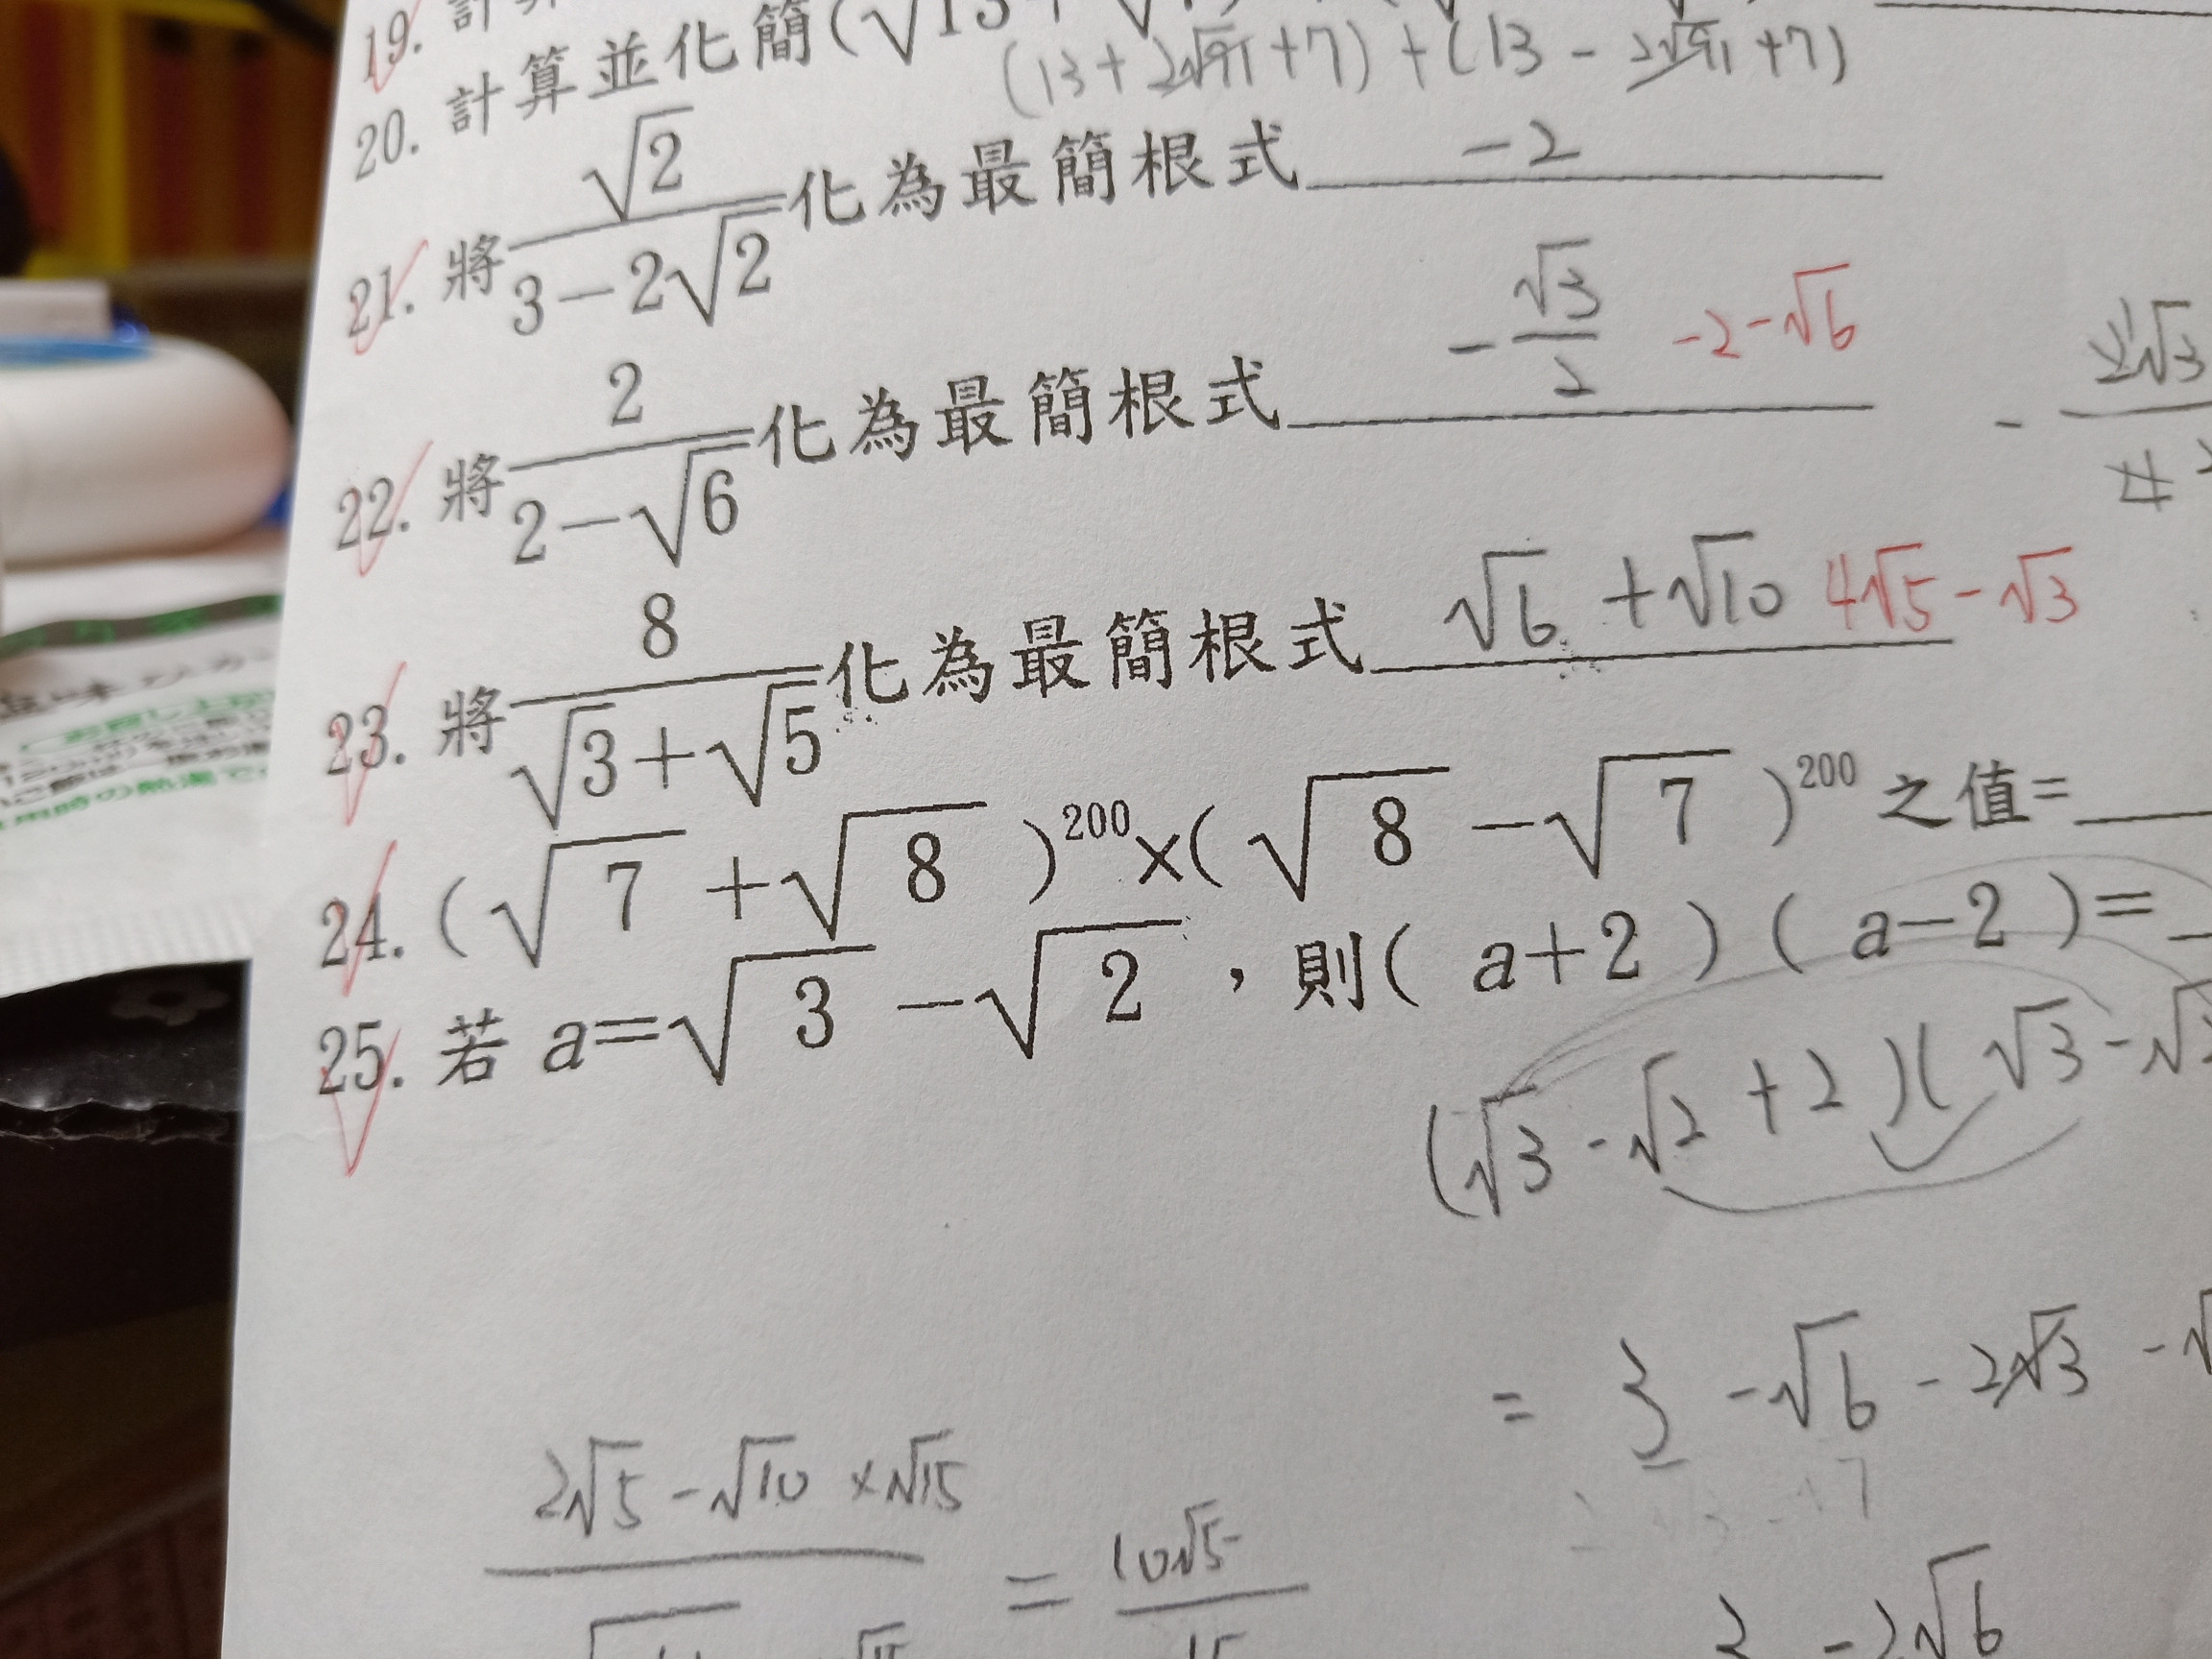 19. 計算
20. 計算並化簡(√13+
(13+2√91+7)+(13-2√91+7)
21. 將 √2/(3-2√2) 化為最簡根式 -2
22. 將 2/(2-√6) 化為最簡根式 -√3/2 -2-√6
23. 將 8/(√3+√5) 化為最簡根式 √6+√10 4√5-√3
24. (√7+√8)²⁰⁰×(√8-√7)²⁰⁰之值=
25. 若 a=√3-√2,則(a+2)(a-2)=
(√3-√2+2)(√3-√
= 3-√6-2√3-√
2√5-√10×√15
= 10√5-
15
-2√6